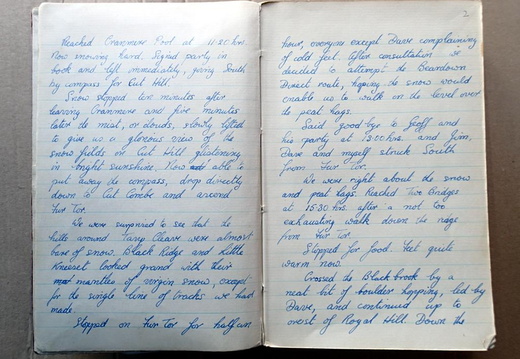 Reached Cranmere Pool at 11.20 hrs.
Now snowing hard. Signed party in
book and left immediately, going South
by compass for Cut Hill.
Snow stopped ten minutes after
leaving Cranmere and five minutes
later the mist, or clouds, slowly lifted
to give us a glorious view of the
snow fields on Cut Hill glistening
in bright sunshine. Now able to
put away the compass, drop directly
down to Cut Combe and ascend
Fur Tor.
We were surprised to see that the
hills around Tavy Cleave were almost
bare of snow. Black Ridge and Little
Kneeset looked grand with their
mantles of virgin snow, except
for the single line of tracks we had
made.
Stopped on Fur Tor for half an
2
hour, everyone except Dave complaining
of cold feet. After consultation we
decided to attempt the Beardown
Direct route, hoping the snow would
enable us to walk on the level over
the peat hags.
Said good-bye to Geoff and
his party at 13.00 hrs. and Jim,
Dave and myself struck South
from Fur Tor.
We were right about the snow
and peat hags. Reached Two Bridges
at 15.30 hrs. after a not too
exhausting walk down the ridge
from Fur Tor.
Stopped for food. Feet quite
warm now.
Crossed the Blackbrook by a
neat bit of boulder hopping, led by
Dave, and continued up to
crest of Royal Hill. Down the